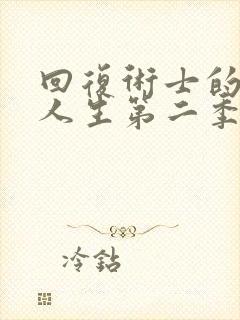 回復術士的
人生第二季
冷鉆